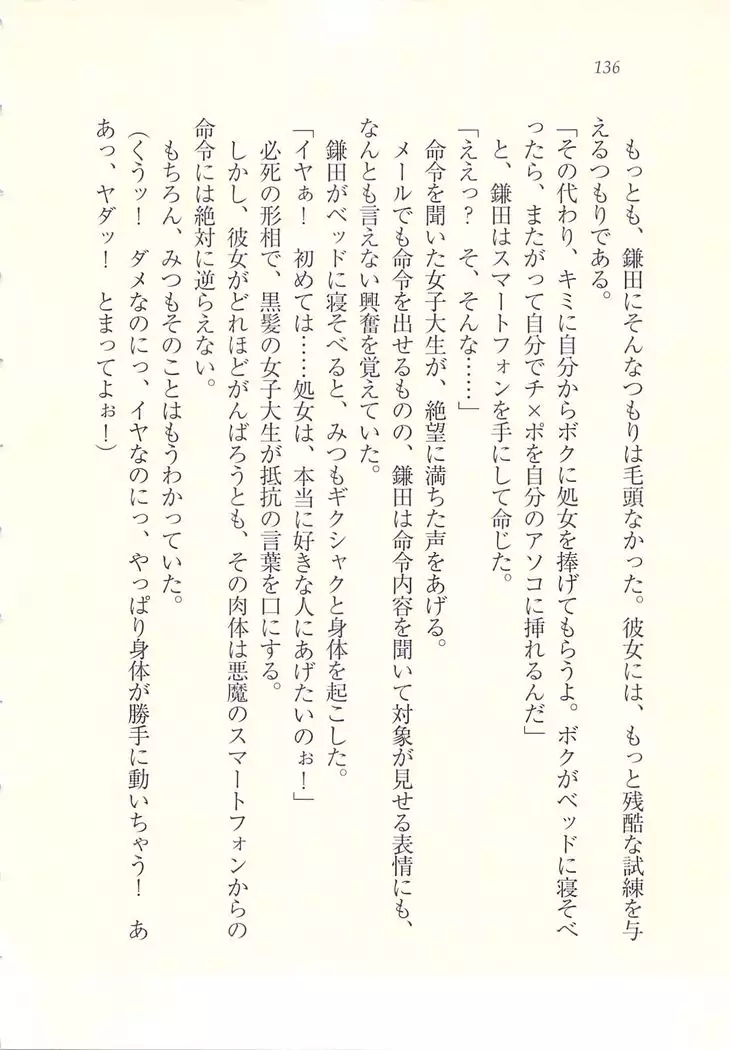 136
　もっとも、鎌田にそんなつもりは毛頭なかった。彼女には、もっと残酷な試練を与
えるつもりである。
「その代わり、キミに自分からボクに処女を捧げてもらうよ。ボクがベッドに寝そべ
ったら、またがって自分でチ×ポを自分のアソコに挿れるんだ」
　と、鎌田はスマートフォンを手にして命じた。
「ええっ？　そ、そんな……」
　命令を聞いた女子大生が、絶望に満ちた声をあげる。
　メールでも命令を出せるものの、鎌田は命令内容を聞いて対象が見せる表情にも、
なんとも言えない興奮を覚えていた。
　鎌田がベッドに寝そべると、みつもギクシャクと身体を起こした。
「イヤぁ！　初めては……処女は、本当に好きな人にあげたいのぉ！」
　必死の形相で、黒髪の女子大生が抵抗の言葉を口にする。
　しかし、彼女がどれほどがんばろうとも、その肉体は悪魔のスマートフォンからの
命令には絶対に逆らえない。
　もちろん、みつもそのことはもうわかっていた。
（くうッ！　ダメなのにっ、イヤなのにっ、やっぱり身体が勝手に動いちゃう！　あ
あっ、ヤダッ！　とまってよぉ！）